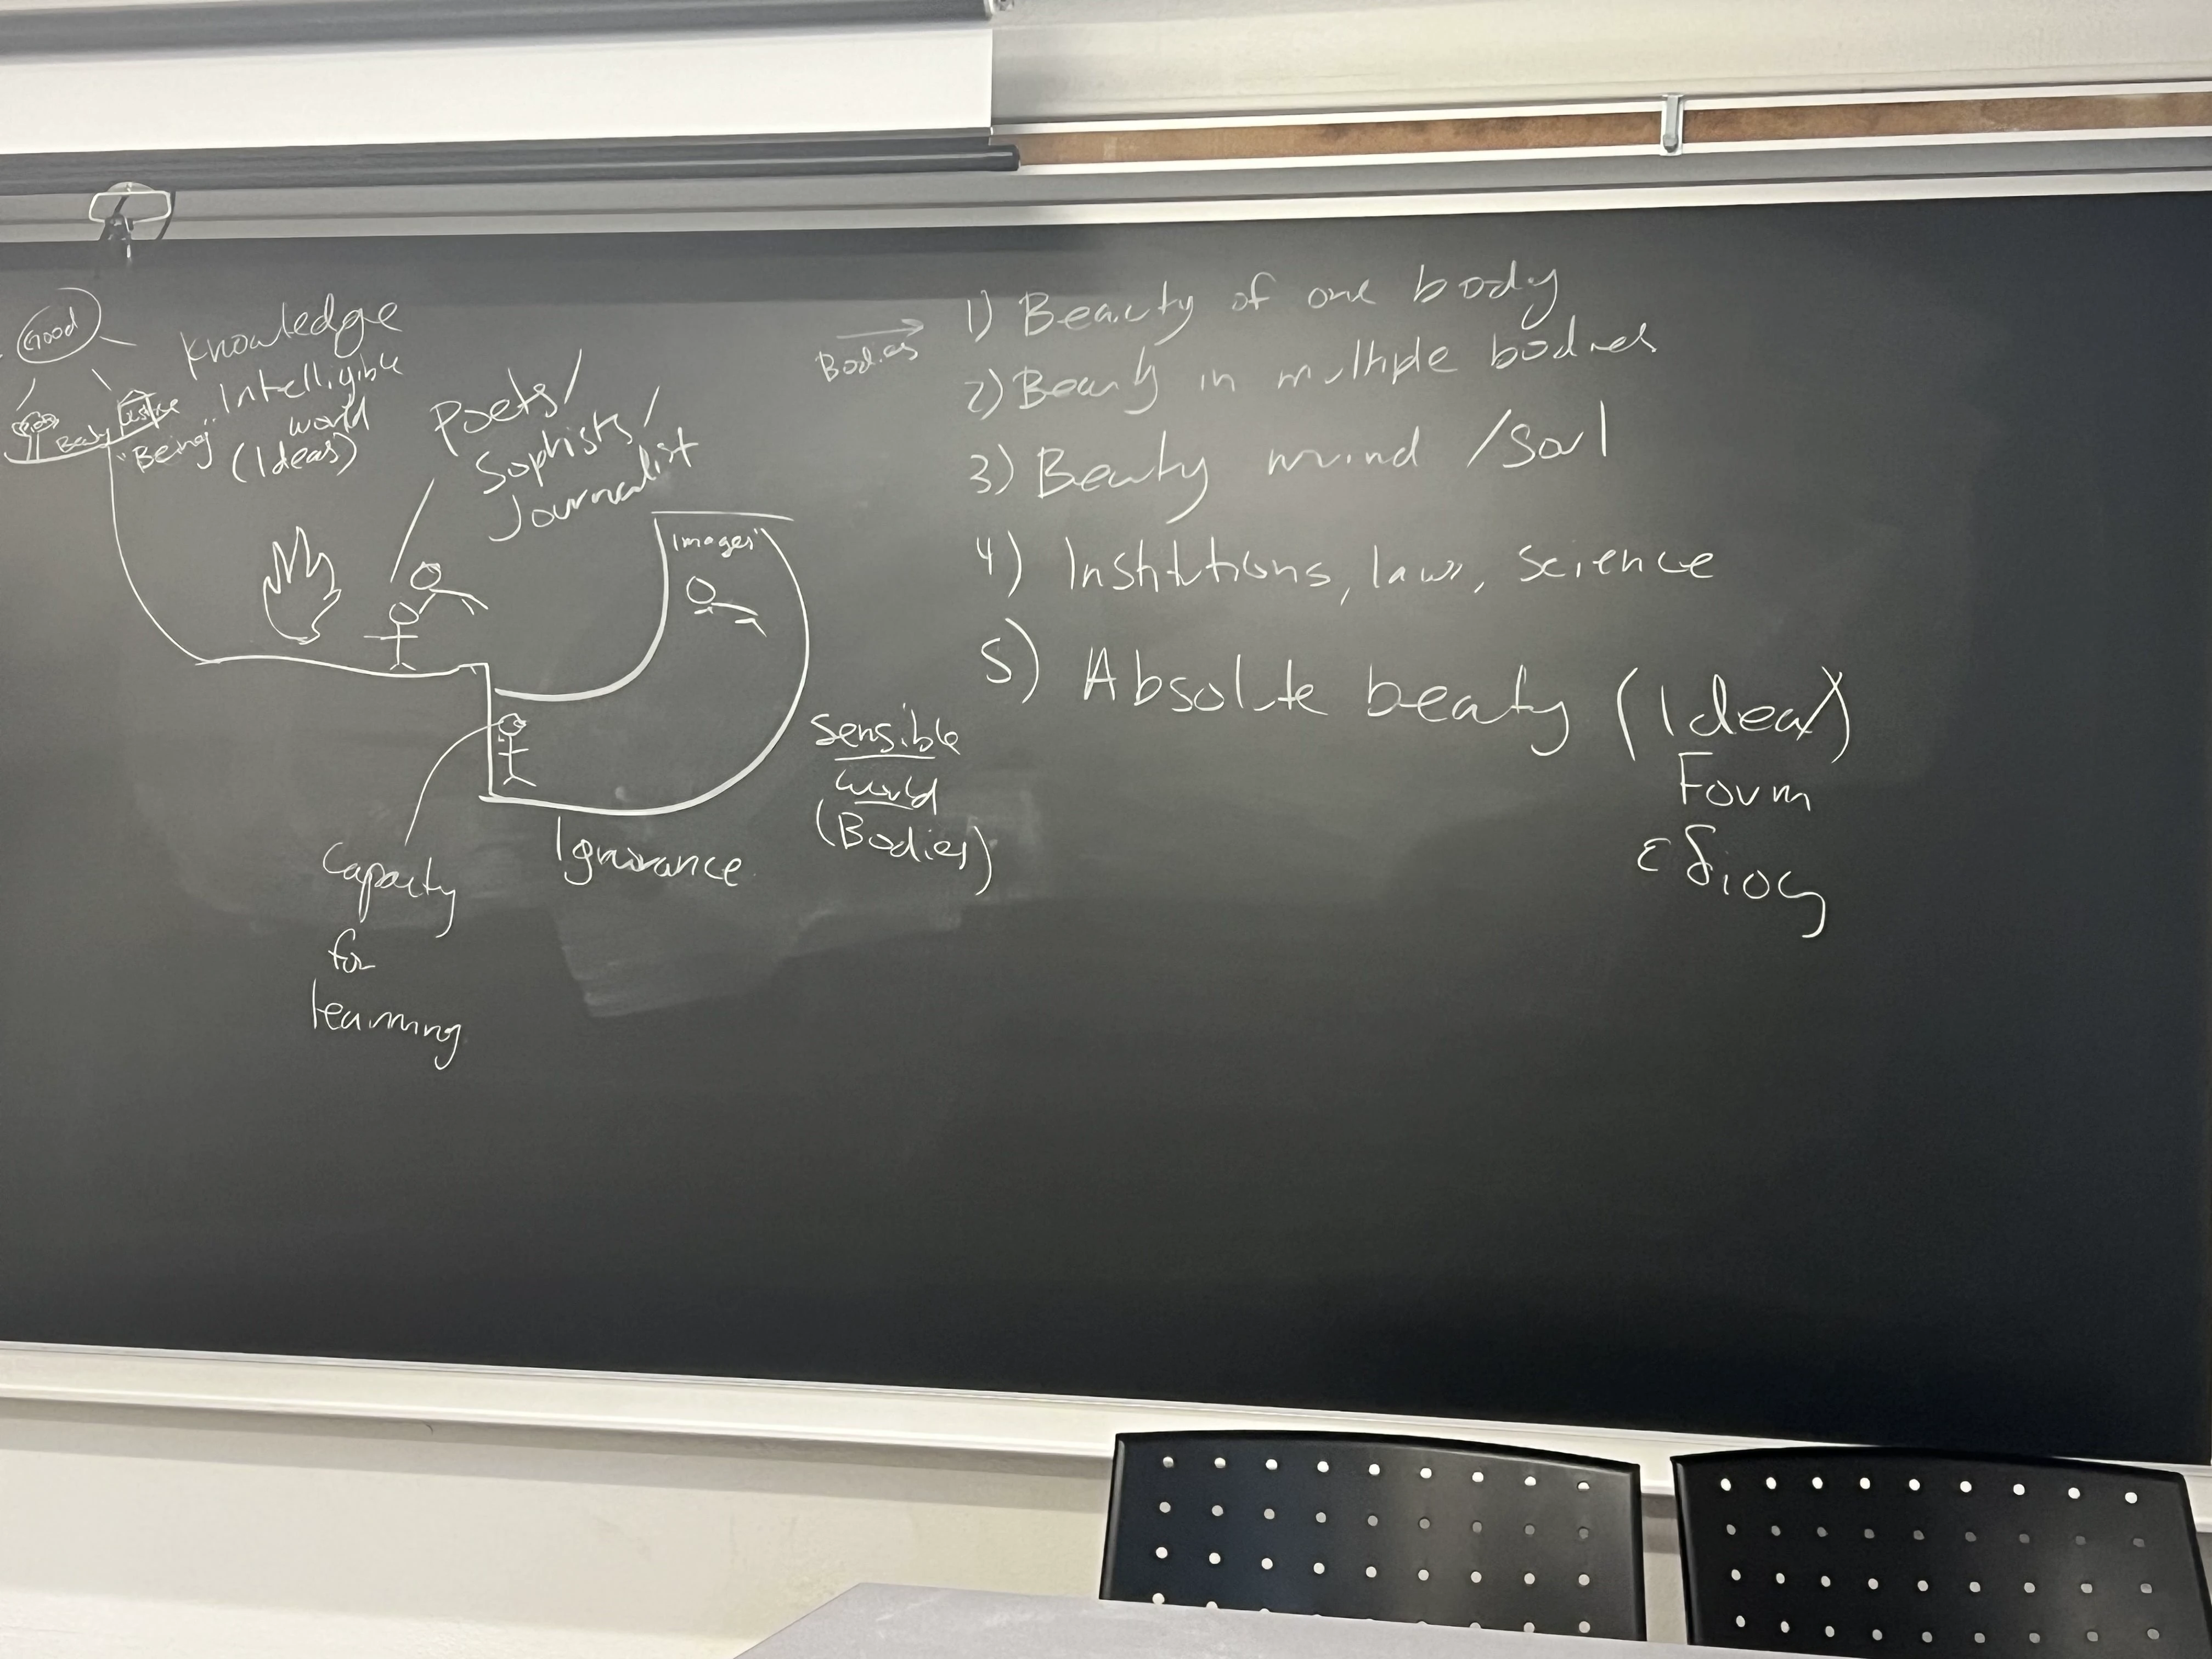 Good
Knowledge
Intelligible
world
(Ideas)
Beauty
Justice
"Being"
Poets/
Sophists/
Journalist
"images"
Capacity
for
learning
Ignorance
Sensible
world
(Bodies)
Bodies
1) Beauty of one body
2) Beauty in multiple bodies
3) Beauty mind /Soul
4) Institutions, laws, science
5) Absolute beauty (Idea)
Form
εδιος